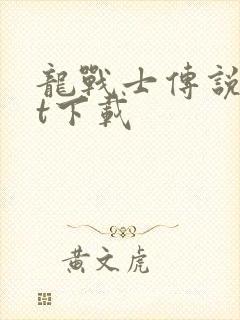 龍戰士傳説
t下載
黃文虎